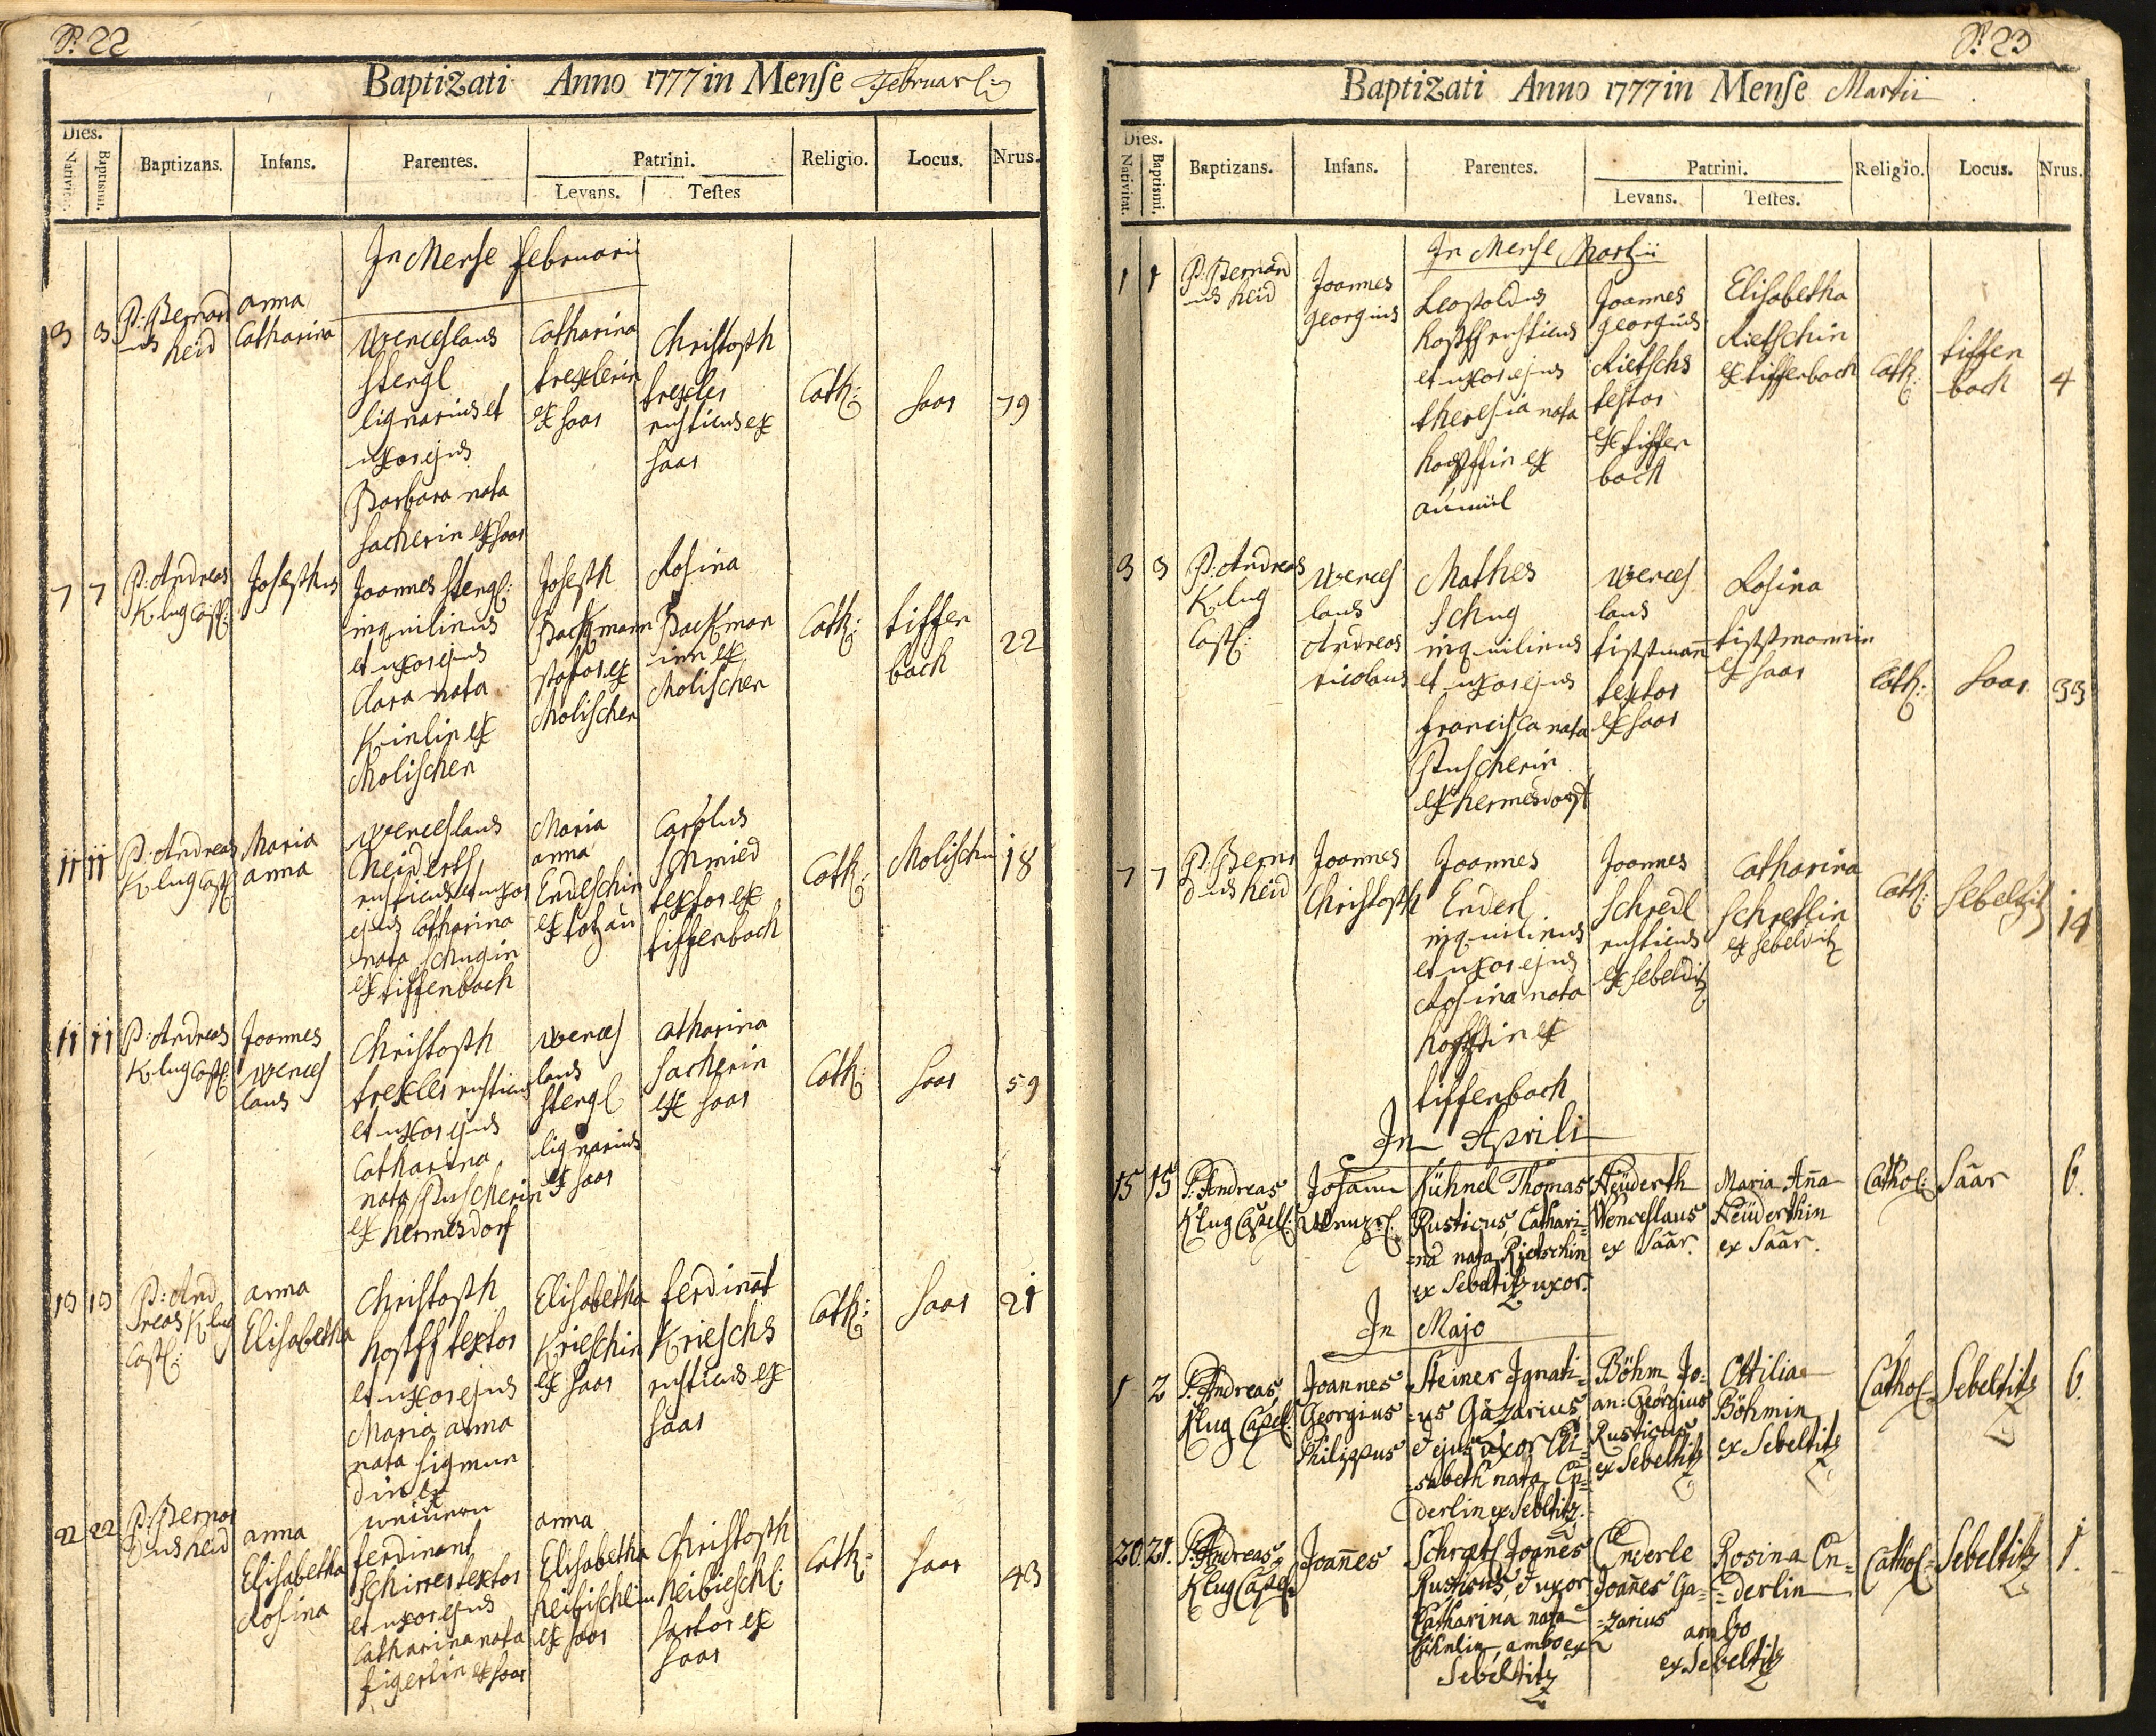 P. 22
Baptizati Anno 1777 in Mense Februarii
Dies.
Nativit. Baptismi. Baptizans. Infans. Parentes. Patrini. Religio. Locus. Nrus.
Levans. Testes
In Mense februarii
3 3
P: Bernard
us heid
anna
Catharina
Wenceslaus
stergl
lignarius et
uxor ejus
Barbara nata
sacherin ex saar
Catharina
trexlerin
ex saar
Christoph
trexler
rusticus ex
saar
Cath:
saar
79
7 7
P: Andreas
Klug Capl:
Josephus
Joannes stergl:
inquilinus
et uxor ejus
Clara nata
Kinlin ex
Molischen
Joseph
ex
Molischen
Rosina
inn ex
Molischen
Cath:
tiffen
bach
22
11 11
P: Andreas
Klug Capl
Maria
anna
Wenceslaus
Neiderth
rusticus et uxor
ejus Catharina
nata schugin
ex tiffenbach
Maria
anna
Endeschin
ex
Carolus
schmied
textor ex
tiffenbach
Cath:
Molischen
18
11 11
P: Andreas
Klug Capl
Joannes
Wences
laus
Christoph
trexler rusticus
et uxor ejus
Catharina
nata Puscherin
ex hermesdorf
Wences
laus
stergl
lignarius
ex saar
Catharina
sacherin
ex saar
Cath:
saar
59
13 13
P: And
reas Klug
Capl:
anna
Elisabetha
Christoph
hopff textor
et uxor ejus
Maria anna
nata sigmun
din ex
Elisabetha
Krieschin
ex saar
ferdinat
Krieschs
rusticus ex
saar
Cath:
saar
21
22 22
P: Bernar
dus heid
anna
Elisabetha
Rosina
ferdinant
schirrer textor
et uxor ejus
Catharina nata
figerlin ex saar
anna
Elisabetha
heibischlin
ex saar
Christoph
heibieschl:
sartor ex
saar
Cath:
saar
43
P. 23
Baptizati Anno 1777 in Mense Martii
Dies.
Nativitat. Baptismi. Baptizans. Infans. Parentes. Patrini. Religio. Locus. Nrus.
Levans. Testes.
In Mense Martzii
1 1
P: Bernard
us heid
Joannes
Georgius
Leopoldus
hopff rusticus
et uxor ejus
theresia nata
hopffin ex
Joannes
georgius
Rietschs
textor
ex tiffen
bach
Elisabetha
Rietschin
ex tiffenbach
Cath:
tiffen
bach
4
3 3
P: Andreas
Klug
Capl:
Wences
laus
Andreas
nicolaus
Mathes
Schug
inquilinus
et uxor ejus
francisca nata
Puscherin
ex hermesdorf
Wences
laus
tippmann
textor
ex saar
Rosina
tippmannin
ex saar
Cath:
saar
33
7 7
P: Berna
dus heid
Joannes
Christoph
Joannes
Enderl
inquilinus
et uxor ejus
Rosina nata
hopffin ex
tiffenbach
Joannes
Schredl
rusticus
ex sebelditz
Catharina
Schretlin
ex sebelditz
Cath:
sebelditz
14
In Aprili
15 15
P. Andreas
Klug Capell:
Johann
Wenzel.
Kühnel Thomas
Rusticus, Cathari=
=na nata Rietschin
ex Sebeltitz uxor.
Neüderth
Wenceslaus
ex Saar.
Maria Ana
Neüderthin
ex Saar.
Cathol:
Saar
6.
In Majo
1 2
P. Andreas
Klug Capell:
Joannes
Georgius
Philippus
Steiner Ignati=
=us Gazarius
& ejus uxor Eli=
=sabeth nata En=
derlin ex Sebeltitz.
Böhm Jo=
an: Georgius
Rusticus
ex Sebeltitz
Ottilia
Böhmin
ex Sebeltitz
Cathol=
Sebeltitz
6.
20. 21.
P. Andreas
Klug Capell=
Joannes
Schretl Joannes
Rusticus, & uxor
Catharina nata
Kühnlin, ambo ex
Sebeltitz
Enderle
Joannes Ga=
=zarius
Rosina En=
=derlin
ambo
ex Sebeltitz
Cathol=
Sebeltitz
1.